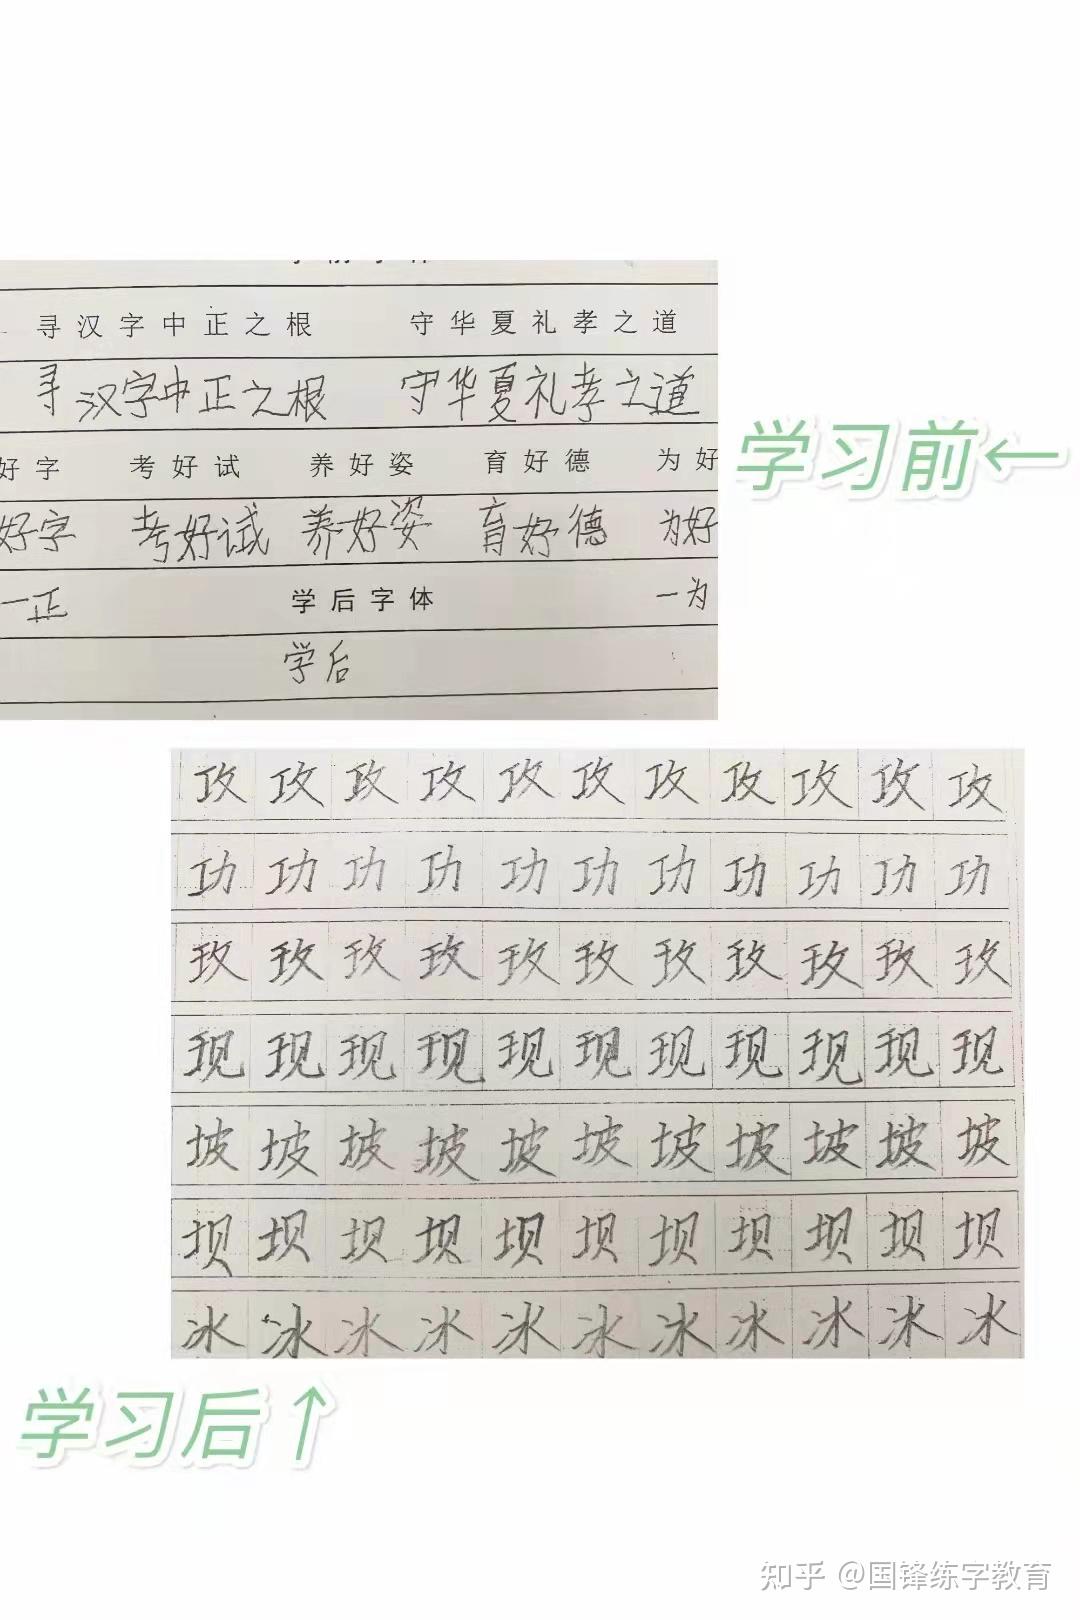 寻汉字中正之根 守华夏礼孝之道
寻汉字中正之根 守华夏礼孝之道
好字 考好试 养好姿 育好德 为好
好字 考好试 养好姿 育好德 为好
一正 学后字体 一为
学后
学习前←
攻攻攻攻攻攻攻攻攻攻攻
功功功功功功功功功功功
玫玫玫玫玫玫玫玫玫玫玫
现现现现现现现现现现现
坡坡坡坡坡坡坡坡坡坡坡
坝坝坝坝坝坝坝坝坝坝坝
冰冰冰冰冰冰冰冰冰冰冰
学习后↑
知乎 @国锋练字教育